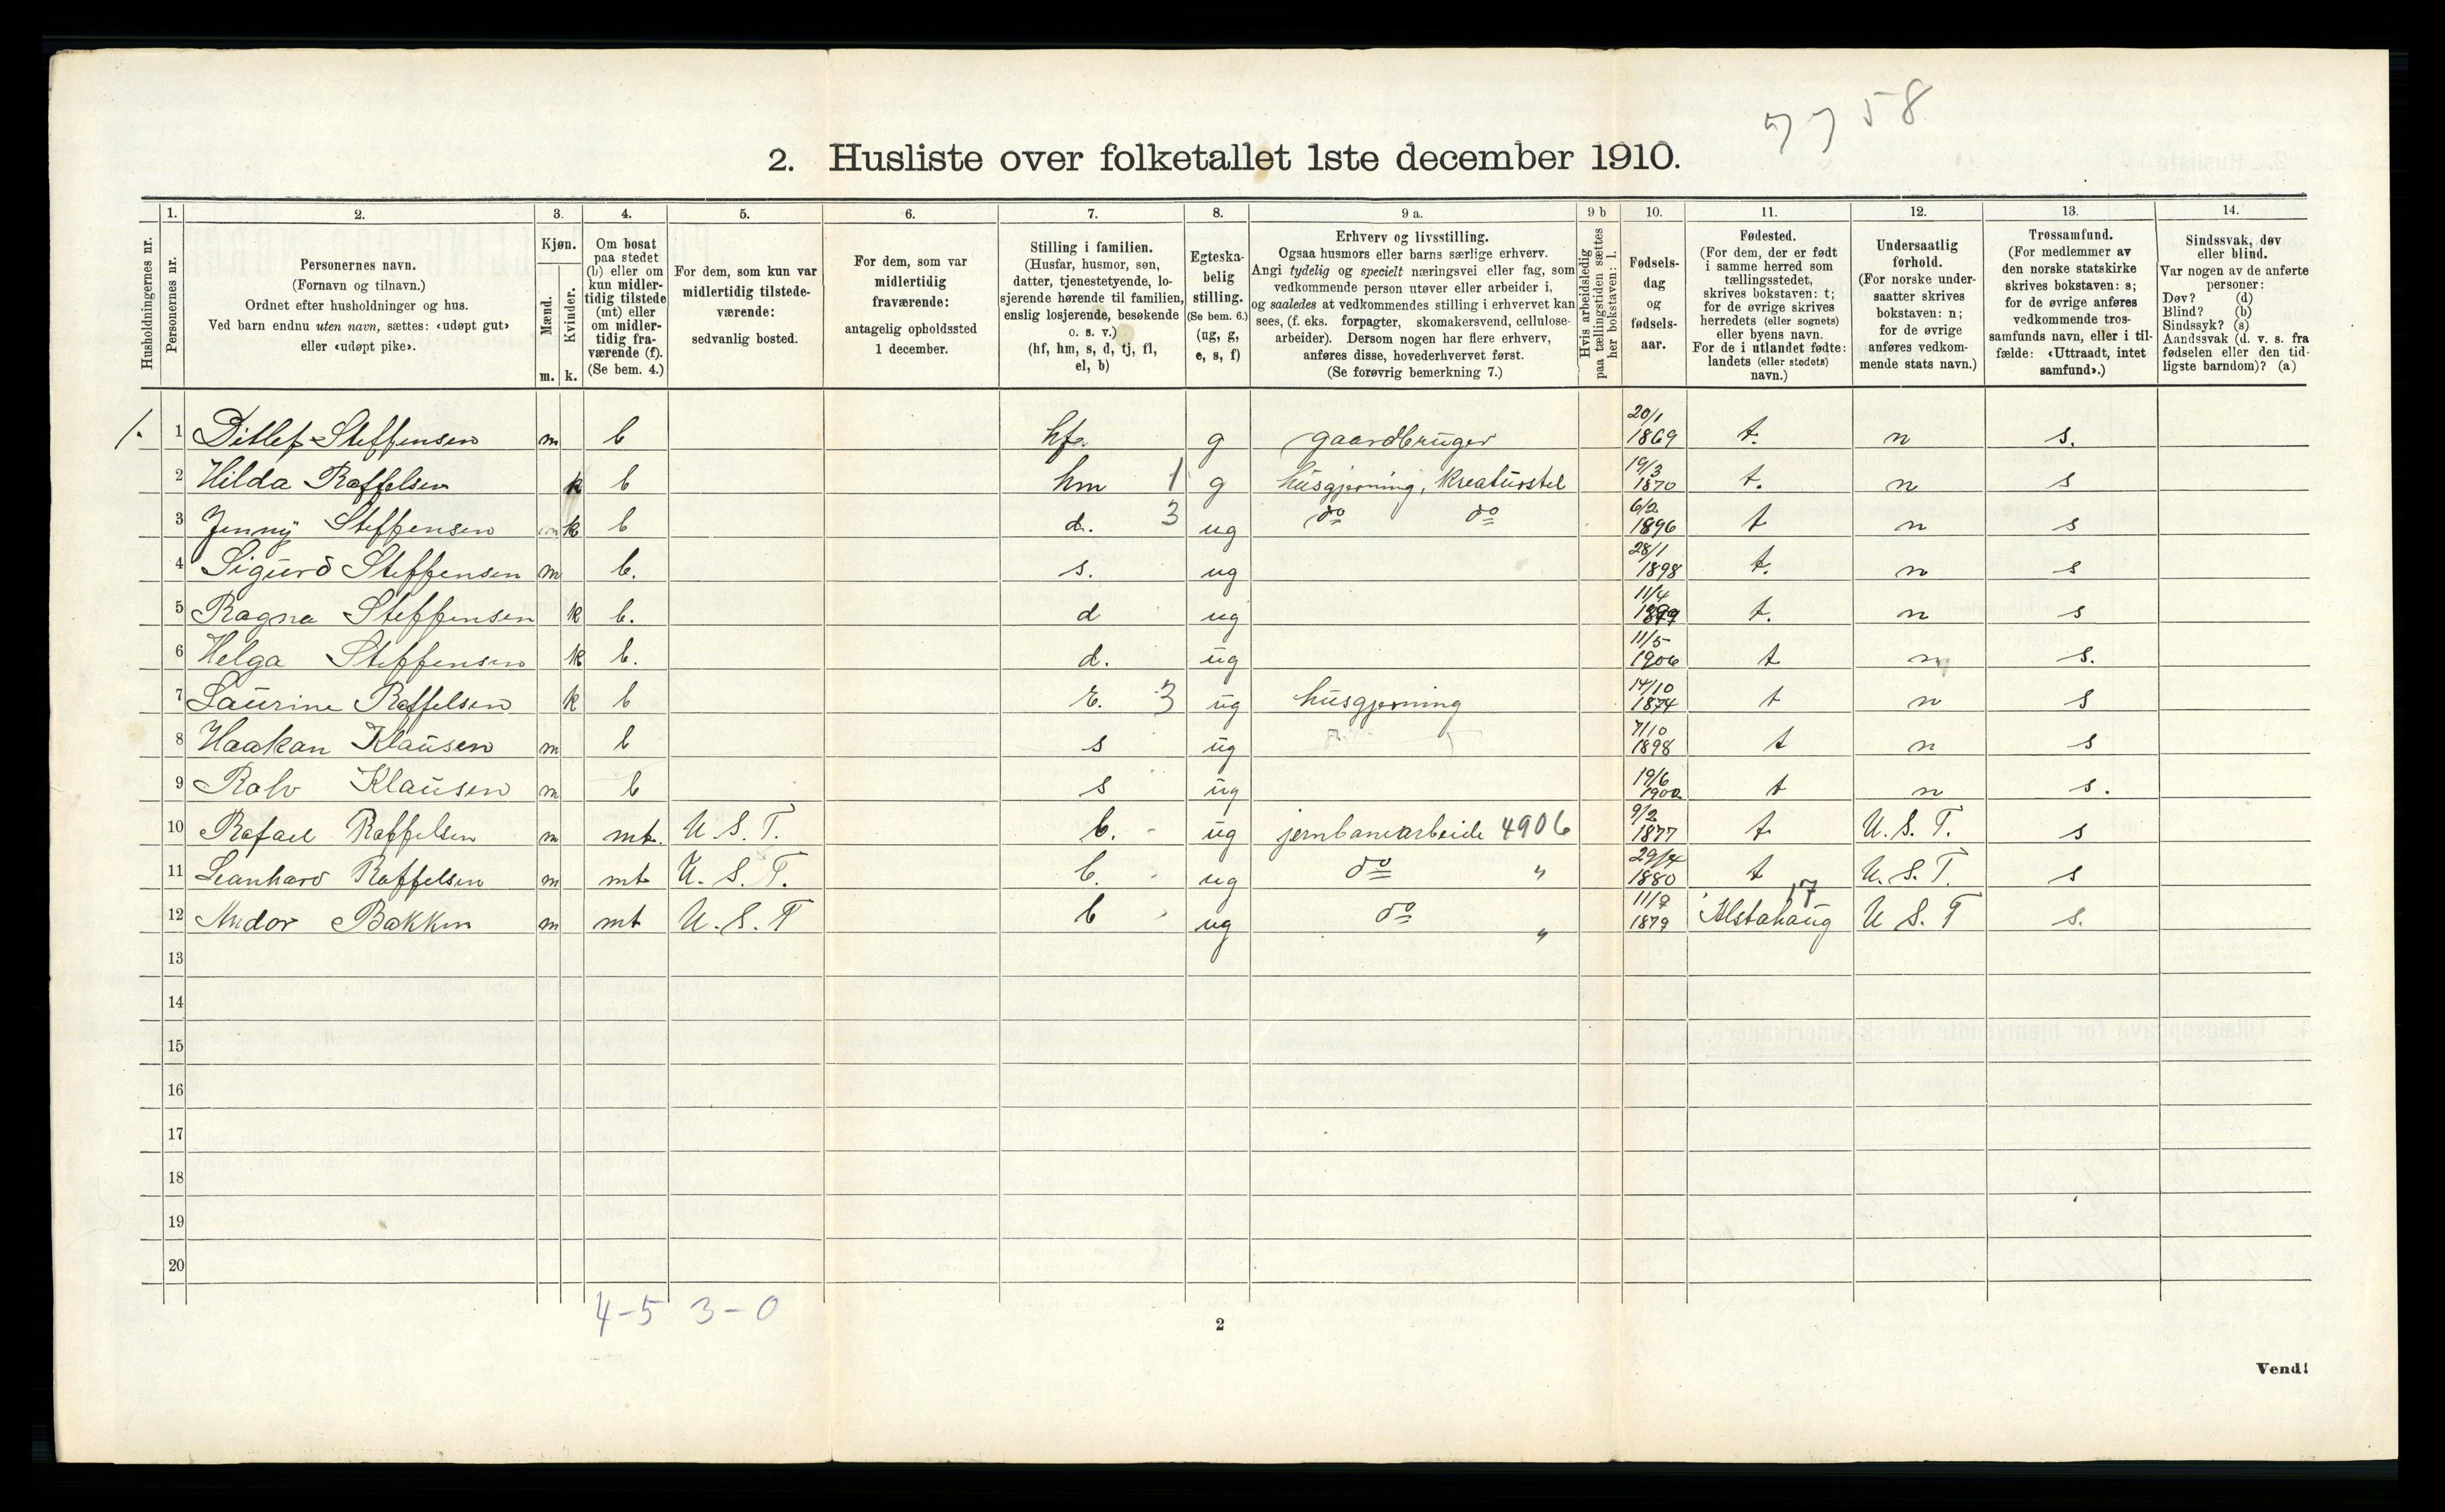 7758
2. Husliste over folketallet 1ste december 1910.
Husholdningernes nr.
1. Personernes nr.
2. Personernes navn.
(Fornavn og tilnavn.)
Ordnet efter husholdninger og hus.
Ved barn endnu uten navn, sættes: «udøpt gut»
eller «udøpt pike».
3. Kjøn.
Mænd. m.
Kvinder. k.
4. Om bosat
paa stedet
(b) eller om
kun midler-
tidig tilstede
(mt) eller
om midler-
tidig fra-
værende (f).
(Se bem. 4.)
5. For dem, som kun var
midlertidig tilstede-
værende:
sedvanlig bosted.
6. For dem, som var
midlertidig
fraværende:
antagelig opholdssted
1 december.
7. Stilling i familien.
(Husfar, husmor, søn,
datter, tjenestetyende, lo-
sjerende hørende til familien,
enslig losjerende, besøkende
o. s. v.)
(hf, hm, s, d, tj, fl,
el, b)
8. Egteska-
belig
stilling.
(Se bem. 6.)
(ug, g,
e, s, f)
9 a. Erhverv og livsstilling.
Ogsaa husmors eller barns særlige erhverv.
Angi tydelig og specielt næringsvei eller fag, som
vedkommende person utøver eller arbeider i,
og saaledes at vedkommendes stilling i erhvervet kan
sees, (f. eks. forpagter, skomakersvend, cellulose-
arbeider). Dersom nogen har flere erhverv,
anføres disse, hovederhvervet først.
(Se forøvrig bemerkning 7.)
9 b Hvis arbeidsledig
paa tællingstiden sættes
her bokstaven: l.
10. Fødsels-
dag
og
fødsels-
aar.
11. Fødested.
(For dem, der er født
i samme herred som
tællingsstedet,
skrives bokstaven: t;
for de øvrige skrives
herredets (eller sognets)
eller byens navn.
For de i utlandet fødte:
landets (eller stedets)
navn.)
12. Undersaatlig
forhold.
(For norske under-
saatter skrives
bokstaven: n;
for de øvrige
anføres vedkom-
mende stats navn.)
13. Trossamfund.
(For medlemmer av
den norske statskirke
skrives bokstaven: s;
for de øvrige anføres
vedkommende tros-
samfunds navn, eller i til-
fælde: «Uttraadt, intet
samfund».)
14. Sindssvak, døv
eller blind.
Var nogen av de anførte
personer:
Døv? (d)
Blind? (b)
Sindssyk? (s)
Aandssvak (d. v. s. fra
fødselen eller den tid-
ligste barndom)? (a)
1. 1 Ditlef Steffensen m b hf. g gaardbruger 20/1 1869 t. n s.
2 Hilda Raffelsen k b hm 1 g husgjerning, Kreaturstel 19/3 1870 t. n s
3 Jenny Steffensen k b d. 3 ug do do 6/2 1896 t n s
4 Sigurd Steffensen m b. s. ug 28/1 1898 t. n s
5 Ragna Steffensen k b. d ug 11/4 1899 t. n s
6 Helga Steffensen k b. d. ug 11/5 1906 t n s.
7 Laurine Raffelsen k b 3 ug husgjerning 14/10 1874 t n s
8 Haakan Klausen m b s ug 7/10 1898 t n s
9 Ralv Klausen m b s ug 19/6 1900 t n s.
10 Rafael Raffelsen m mt. U. S. T. b. - ug jernbanearbeide 4906 9/2 1877 t U. S. T. s
11 Leanhard Raffelsen m mt U. S. T. b. - ug do " 29/4 1880 t U. S. T. s
12 Andor Bakken m mt U. S. T b ug do " 1879 Alstahaug 17 U S. T s.
13
14
15
16
17
18
19
20
4-5 3-0
2
Vend!